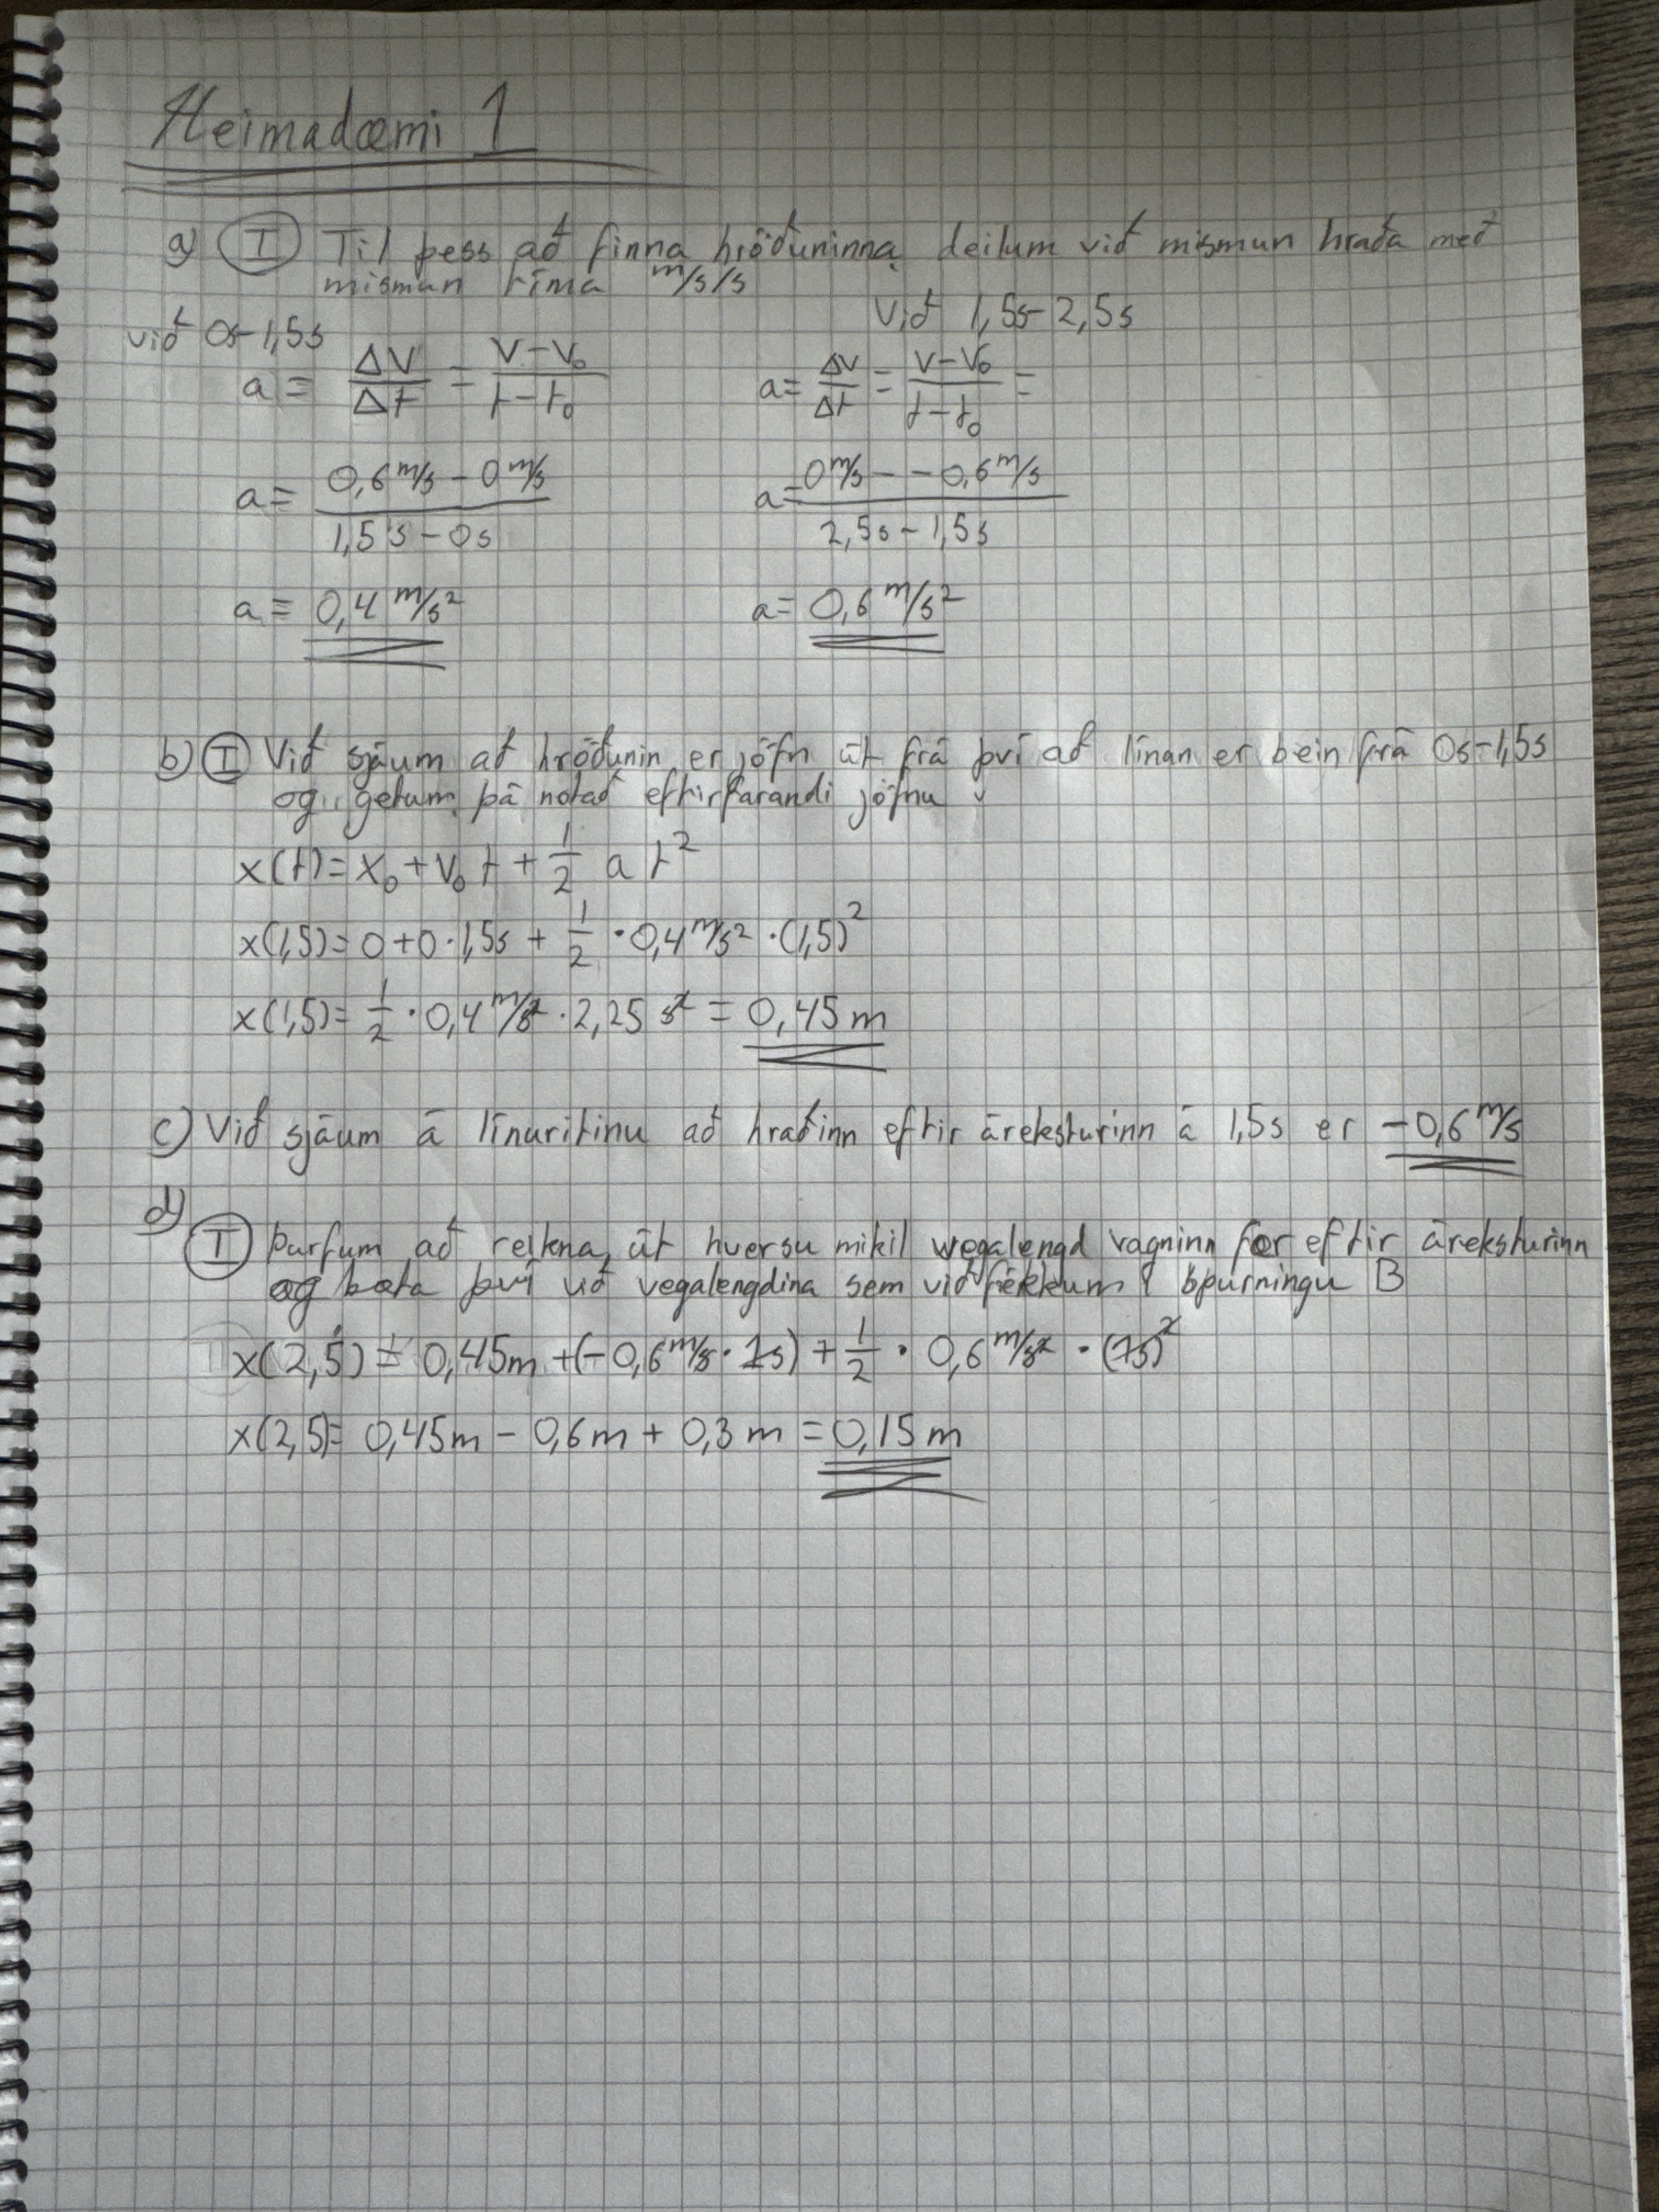 Heimadæmi 1
a) I Til þess að finna hröðuninna deilum við mismun hraða með
mismun tíma m/s/s
við 0s-1,5s
a = ΔV/Δt = V-V₀/t-t₀
a = 0,6 m/s - 0 m/s / 1,5s - 0s
a = 0,4 m/s²
Við 1,5s-2,5s
a = ΔV/Δt = V-V₀/t-t₀ =
a = 0 m/s - -0,6 m/s / 2,5s - 1,5s
a = 0,6 m/s²
b) I Við sjáum að hröðunin er jöfn út frá því að línan er bein frá 0s-1,5s
og getum þá notað eftirfarandi jöfnu
x(t) = x₀ + V₀ t + 1/2 a t²
x(1,5) = 0 + 0 · 1,5s + 1/2 · 0,4 m/s² · (1,5)²
x(1,5) = 1/2 · 0,4 m/s² · 2,25 s² = 0,45 m
c) Við sjáum á línuritinu að hraðinn eftir áreksturinn á 1,5s er -0,6 m/s
d)
I Þurfum að reikna út hversu mikil vegalengd vagninn fór eftir áreksturinn
og bæta því við vegalengdina sem við fékkum í spurningu B
x(2,5) = 0,45m + (-0,6 m/s · 1s) + 1/2 · 0,6 m/s² · (1s)²
x(2,5) = 0,45m - 0,6m + 0,3m = 0,15m